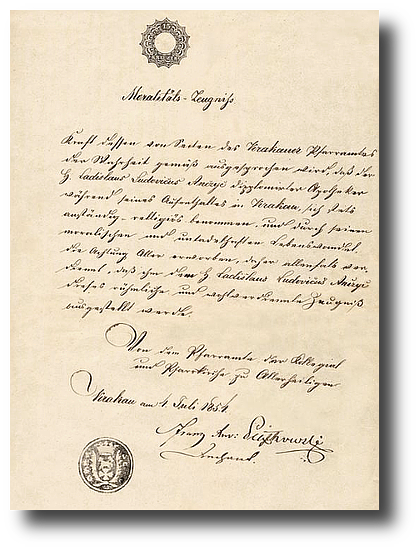 Moralitäts-Zeugniß.
Kraft dessen von Seiten des Krakauer Pfarramtes
der Wahrheit gemäß ausgesprochen wird, daß der
H. Ladislaus Ludovicus Anczyc diplomirter Apotheker
während seines Aufenthaltes in Krakau, sich stets
anständig-religiös benommen, und durch seinen
moralischen und untadelhaften Lebenswandel,
die Achtung Aller erworben, daher allenfalls ver
dient, daß ihm dem H. Ladislaus Ludovicus Anczyc
dieses rühmliche und wohlverdiente Zeugniß
ausgestellt werde.
Von dem Pfarramte der Kollegial
und Pfarrkirche zu Allerheiligen
Krakau am 1. Juli 1854
Franz Xav: